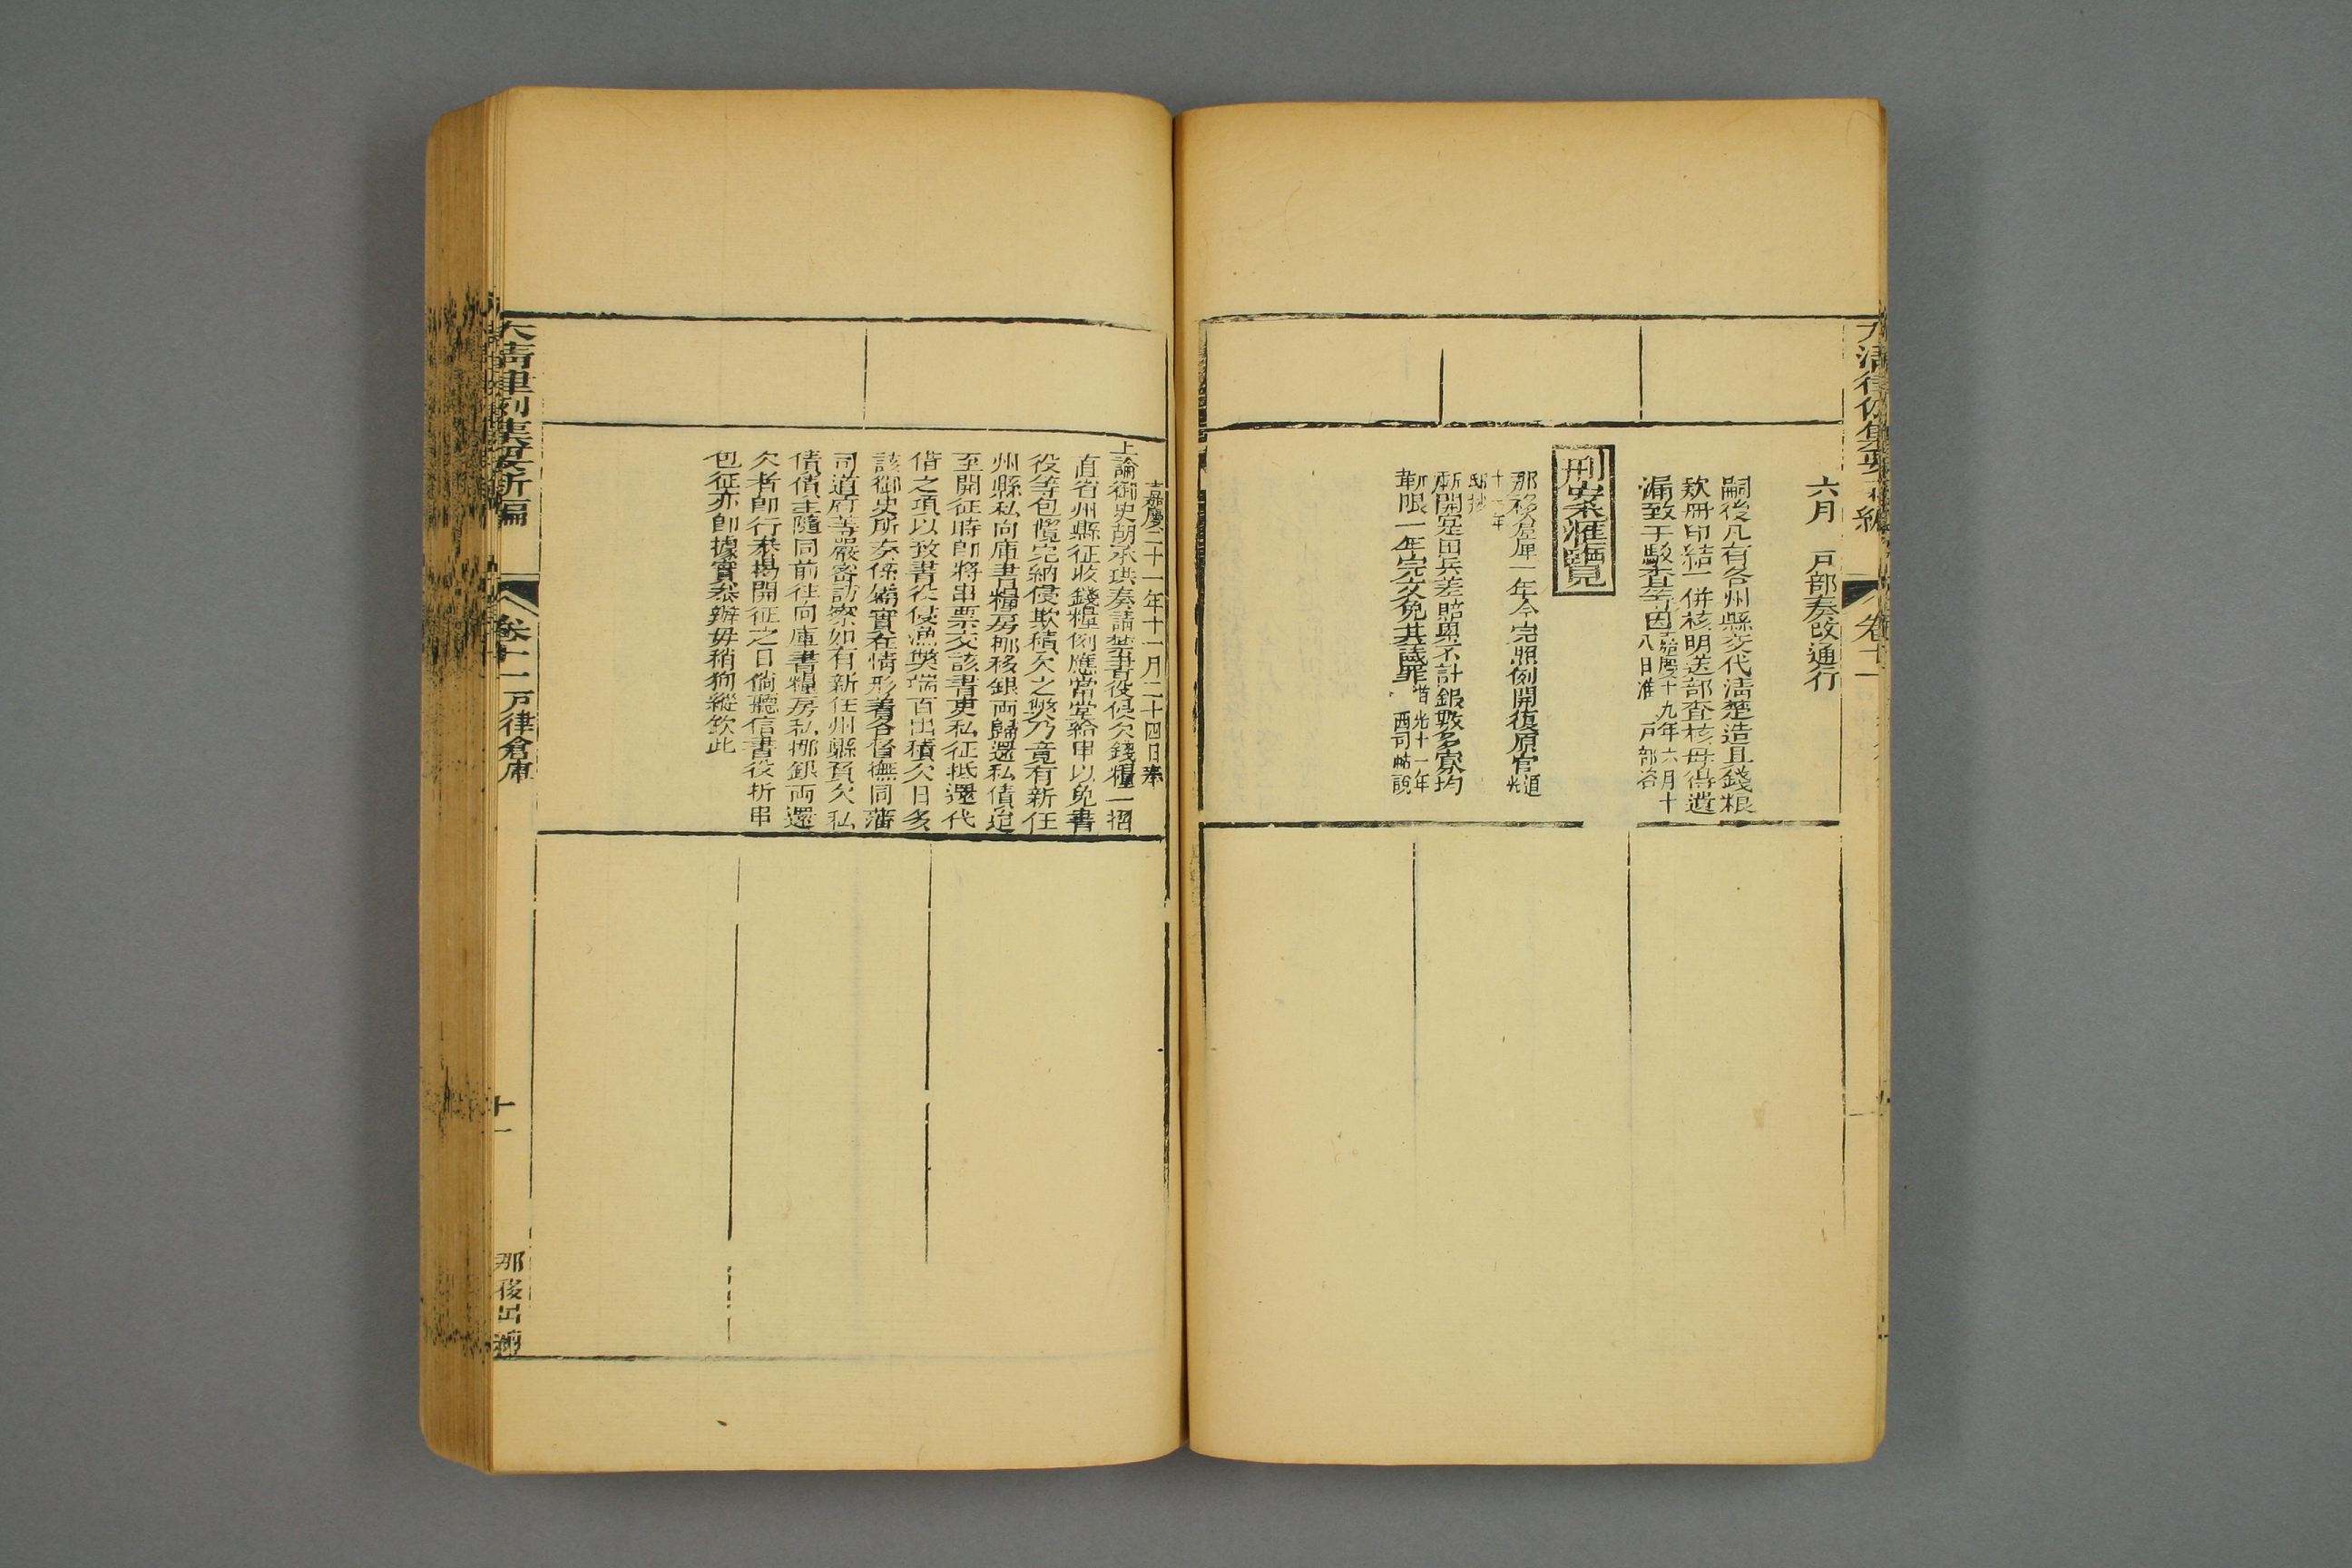 六月　戸部奏改通行
嗣後凡有各州縣交代清楚造具錢粮
欵冊印結一併核明送部查核毋得遺
漏致干駁查等因嘉慶十九年六月十八日准戸部咨
刑案滙覽
那移虧
一年今完照例開復原官道光
十一年
邸抄
新開屯田兵差賠累不計銀數多寡均
斬限一年完交免其議罪道光十一年西司帖說
大清律例集要新編
卷十一
嘉慶二十一年十一月二十四日奉
上諭御史胡承珙奏請禁書役侵欠錢糧一摺
直省州縣征收錢糧例應當堂給串以免書
役等包攬完納侵欺積欠之獘乃竟有新任
州縣私向庫書糧房挪移銀両歸還私債迨
至開征時即將串票交該書吏私征抵還代
借之項以致書役侵漁獘端百出積欠日多
該御史所奏係屬實在情形着各督撫同藩
司道府等嚴密訪察如有新任州縣負欠私
債債主隨同前往向庫書糧房私挪銀両還
欠者即行叅揭開征之日倘聽信書役折串
包征亦即據實叅辦毋稍狥縱欽此
大清律例集要新編
卷十一　戸律倉庫
十一
那移出納